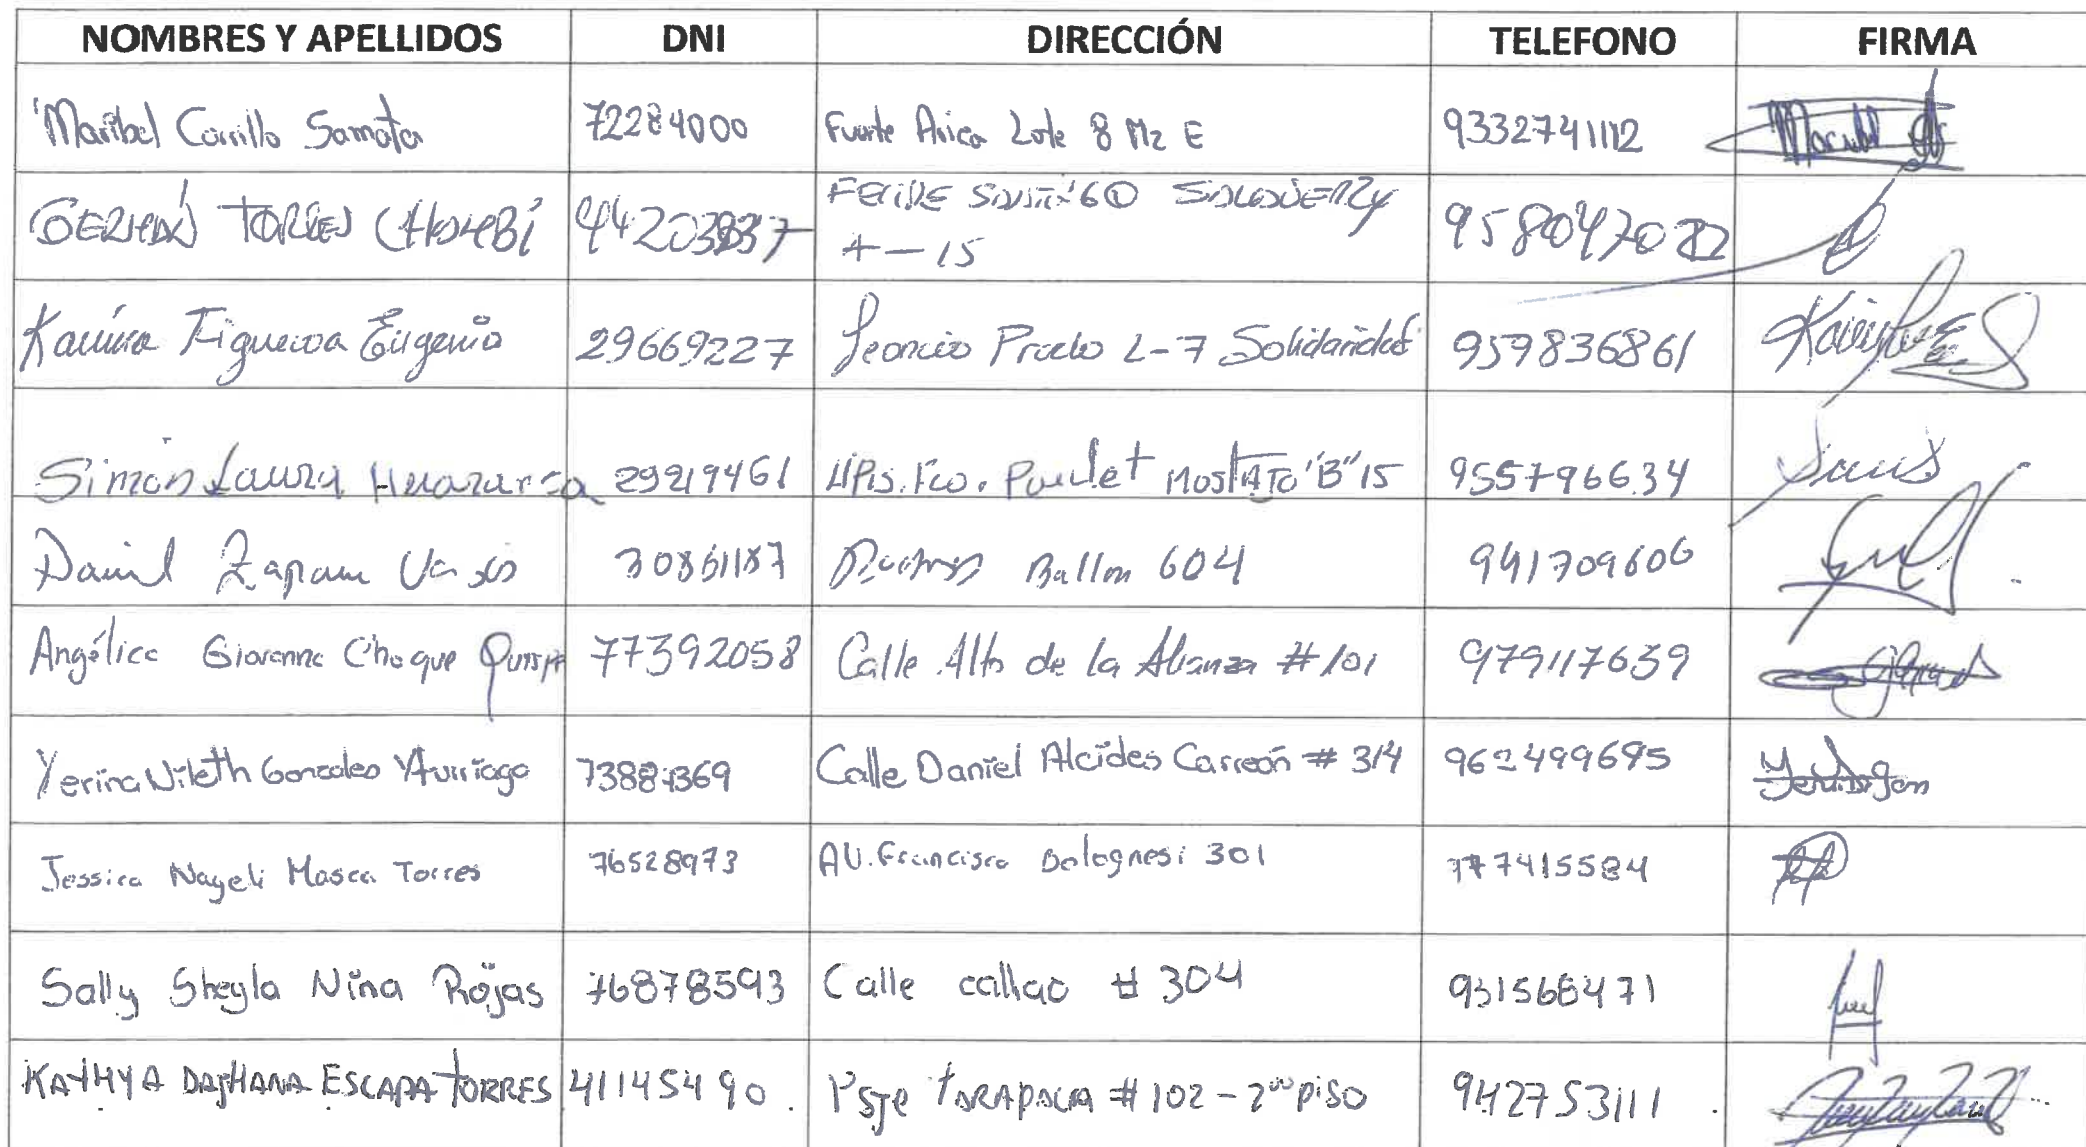 NOMBRES Y APELLIDOS DNI DIRECCIÓN TELEFONO FIRMA
Maribel Carrillo Samata 72284000 Fuerte Arica Lote 8 Mz E 9332741112 Maribel
TORRES 9580470
4-15
Karina Figueroa Eugenio 29669227 Leoncio Prado L-7 Solidaridad 959836861
Simón Laura 29219461 Fco. Paulet MOSTAJO "B" 15 955796634
Zapana 30861187 Ballon 604 941709606
Angélica Giovanna Choque Quispe 77392058 Calle Alto de la Alianza #101 979117659
Yerina Nileth Gonzales Yturriaga Calle Daniel Alcídes Carreón # 314 962499695
Jessica Nayeli Masca Torres 76528973 AU. Francisco Bolognesi 301 777415584
Sally Sheyla Nina Rojas 76878593 Calle callao # 304 931568471
KATHYA DAJHANA ESCAPA TORRES 41145490. Psje TARAPACA # 102 - 2do piso 942753111.